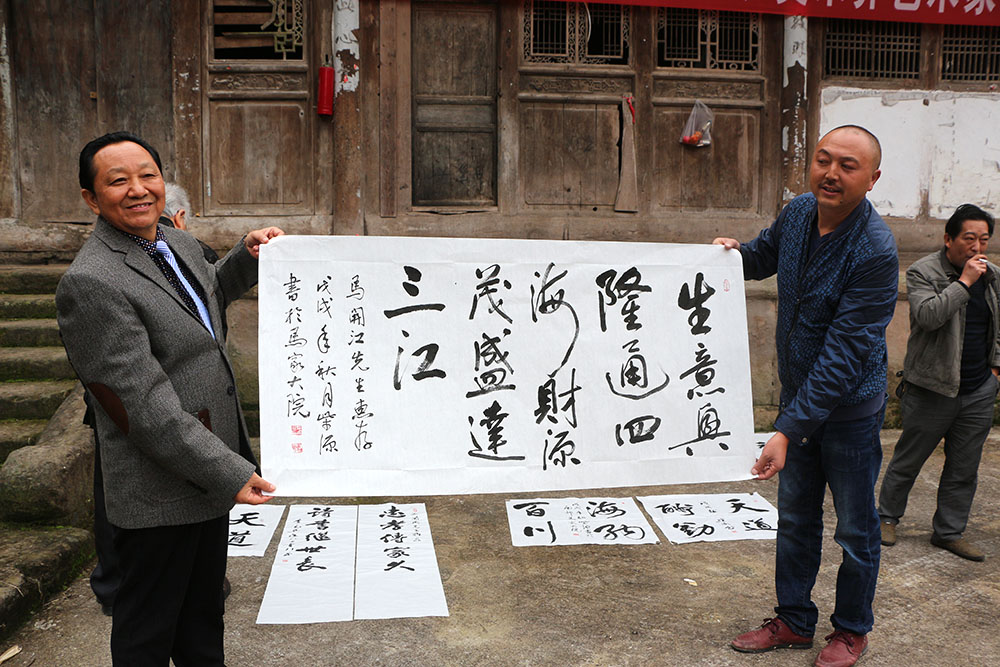 艺术家
生意興
隆通四
海財源
茂盛達
三江
馬開江先生惠存
戊戌年秋月柴源
書於馬家大院
天道
酬勤
海納
百川
忠孝傳家久
詩書繼世長
天道